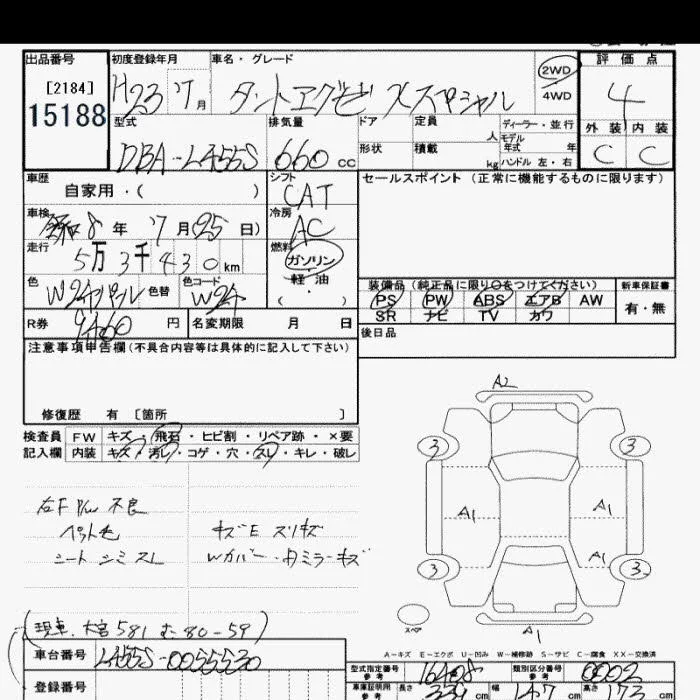 出品番号 初度登録年月 車名・グレード 評価点
[2184] H23 7月 タントエグゼ Xスペシャル 2WD 4WD 4
15188 型式 排気量 ドア 定員 人 ディーラー・並行 外装 内装
DBA-LA455S 660cc 形状 積載 kg モデル年式 年 ハンドル 左・右 C C
車歴 自家用・( ) シフト CAT セールスポイント (正常に機能するものに限ります)
車検 令和8年 7月(25日) 冷房 AC
走行 5万3千430km 燃料 ガソリン 軽油 ( )
色 色替 色コード W24 装備品 (純正品に限り○をつけてください) 新車保証書
PS PW ABS エアB AW 有・無
R券 9460円 名変期限 月 日 SR ナビ TV カワ
注意事項申告欄(不具合内容等は具体的に記入して下さい) 後日品
修復歴 有 [箇所 ]
検査員 FW キズ・飛石・ヒビ割・リペア跡・×要
記入欄 内装 キズ・汚レ・コゲ・穴・スレ・キレ・破レ
A2
3 3
A1 A1
A1
3 3
スペア A1
左F P/W 不良
ペット毛 キズE スリキズ
シート シミ スレ Wカバー・ミラーキズ
(現車.大宮581 む 80-59)
A－キズ E－エクボ U－凹み W－補修跡 S－サビ C－腐食 XX－交換済
車台番号 LA455S-0055530
型式指定番号 参考 16408 類別区分番号 参考 0002
登録番号 車庫証明用 参考 長さ 339cm 幅 147cm 高さ cm